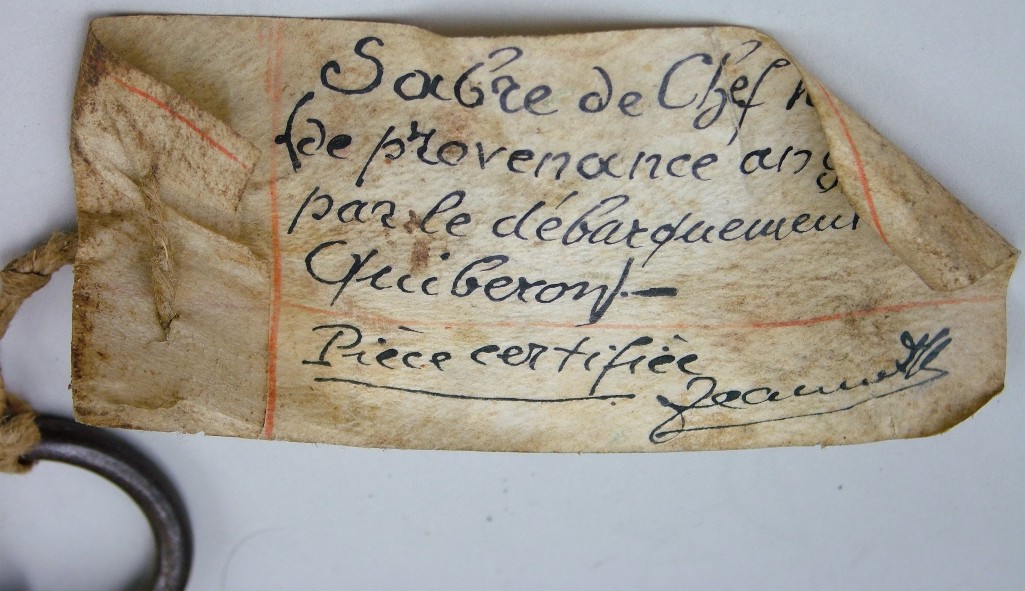 Sabre de Chef
(de provenance ang
par le débarquement
Quiberon)—
Pièce certifiée